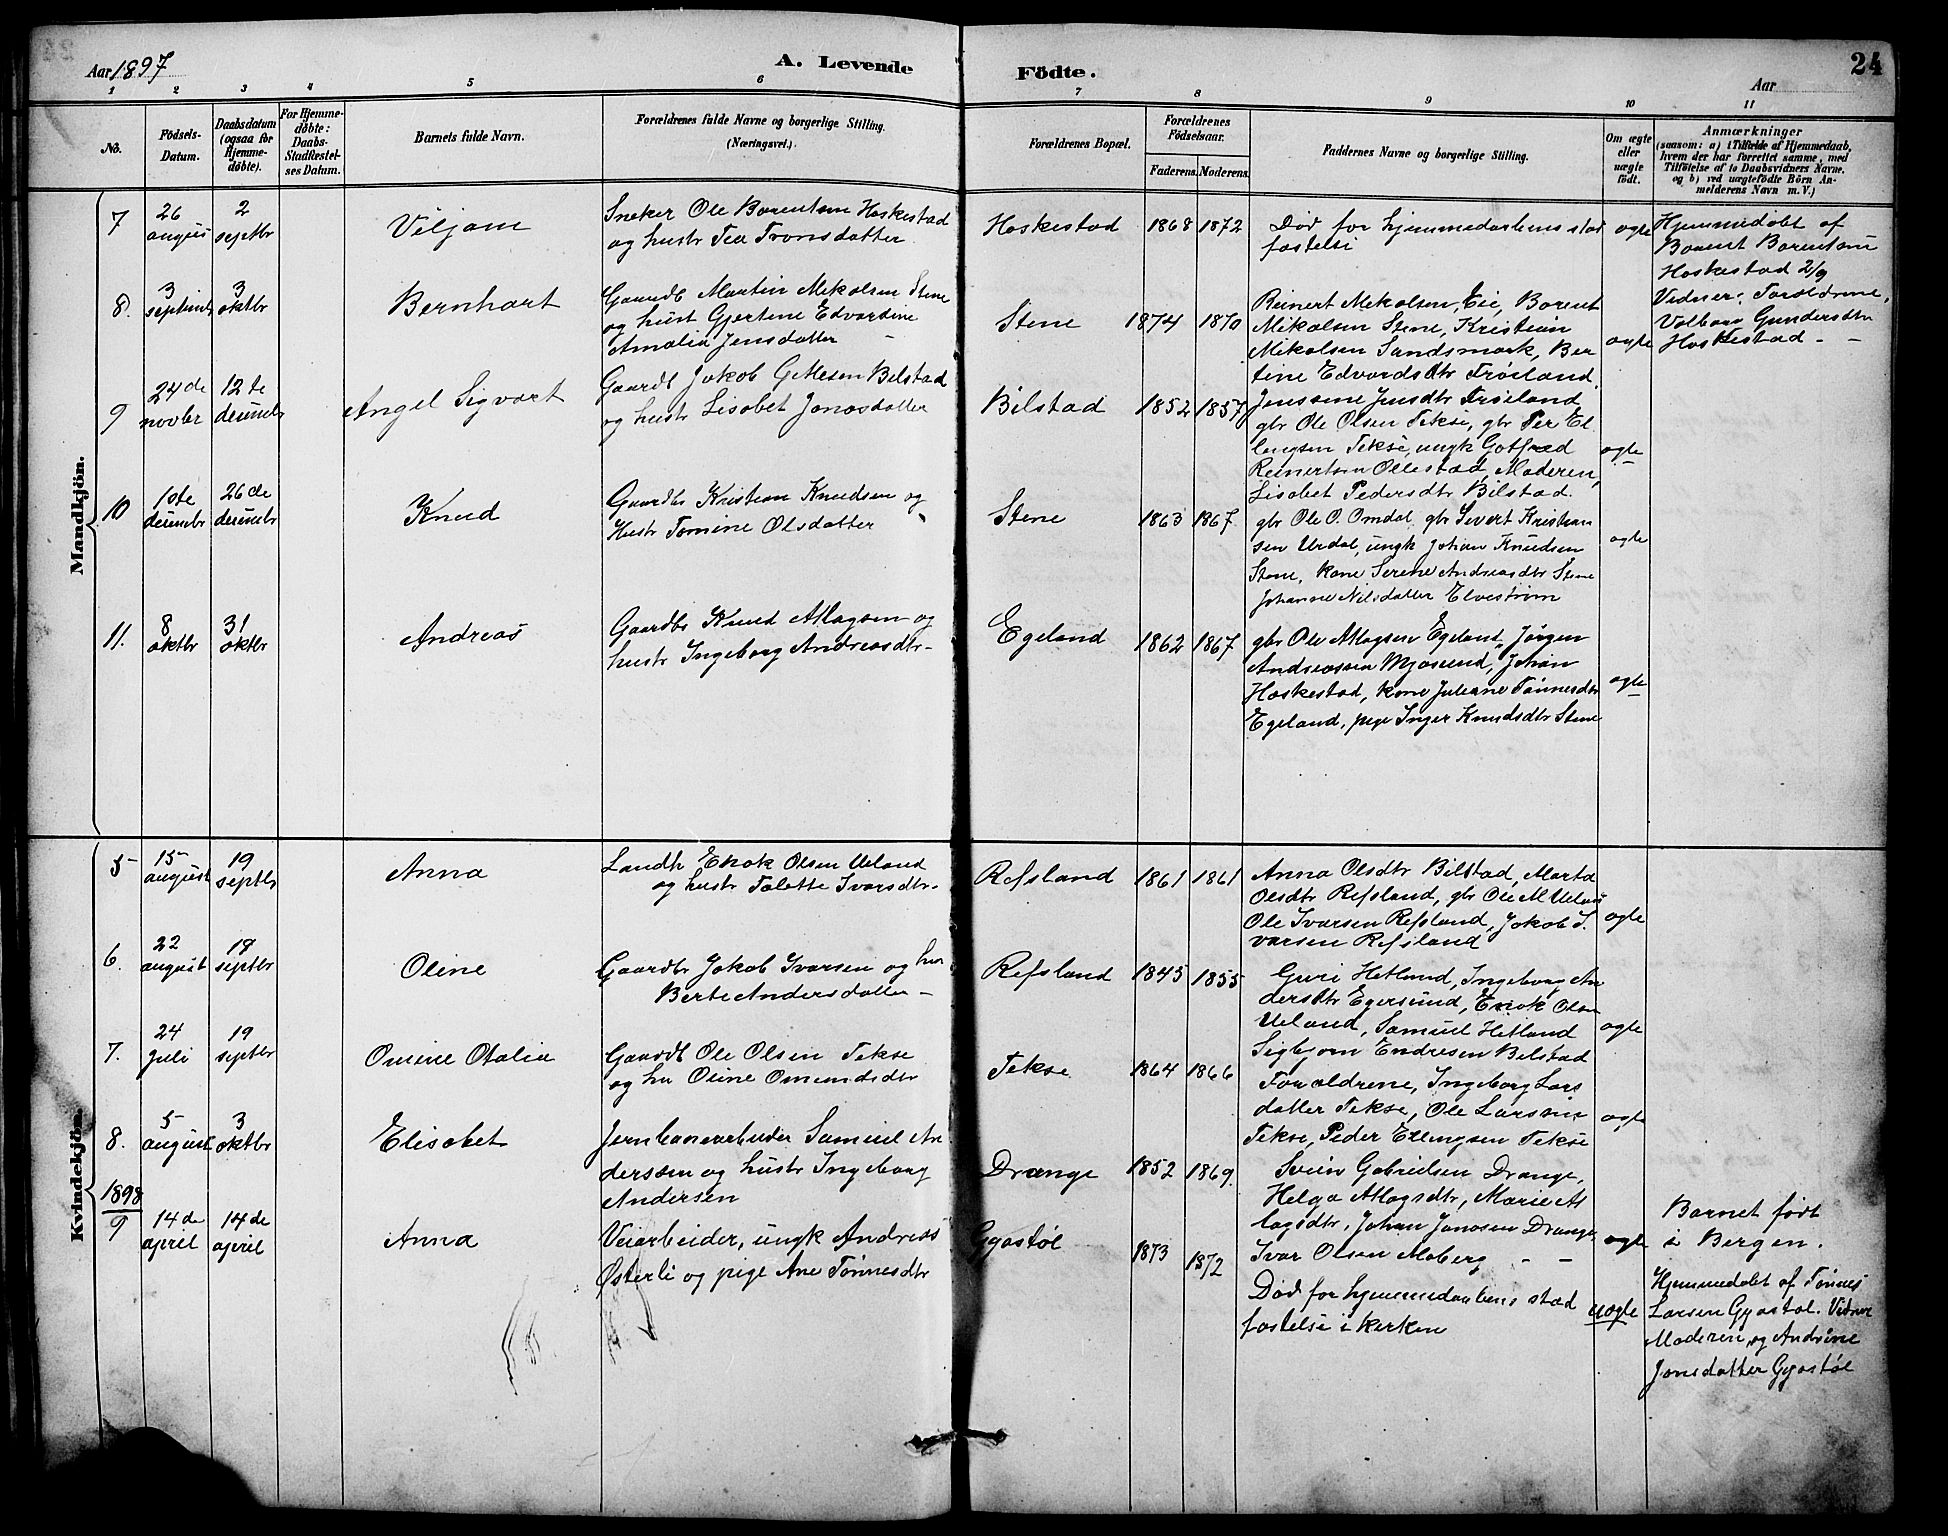 Aar 1897
A. Levende
Födte.
Aar
24
1
2
3
4
5
6
7
8
9
10
11
No.
Födsels-
Datum.
Daabsdatum
(ogsaa for
Hjemme-
døbte).
For Hjemme-
døbte:
Daabs-
Stadfæstel-
ses Datum.
Barnets fulde Navn.
Forældrenes fulde Navne og borgerlige Stilling.
(Næringsvei.)
Forældrenes Bopæl.
Forældrenes
Födselsaar.
Faderens. Moderens.
Faddernes Navne og borgerlige Stilling.
Om ægte
eller
uægte
födt.
Anmærkninger
(saasom: a) i Tilfælde af Hjemmedaab,
hvem der har forrettet samme, med
Tilföielse af to Daabsvidners Navne.
og b) ved uægtefödte Börn An-
melderens Navn m. V.)
Mandkjön.
7
26
augus
2
septbr
Viljam
Sneker Ole Barentsen Haskestad
og hustr Tea Tronsdatter
Haskestad
1868 1872
Død for hjemmedaabens stad
fæstelse
ægte
Hjemmedøbt af
Barent Barentsen
Haskestad 2/9
Vidner: Forældrene,
Valborg Gundersdtr
Haskestad
8.
3
septembr
3
oktbr
Bernhart
Gaardb Martin Mikalsen Stene
og hust Gjertine Edvardine
Amalia Jensdatter
Stene
1874 1870
Reinert Mikalsen Eie, Barent
Mikalsen Stene, Kristian
Mikalsen Sandsmark, Ber
tine Edvardsdtr Frøiland,
Jenssine Jensdtr Frøiland
ægte
9
24de
novbr
12te
desembr
Angel Sigvart
Gaardb Jakob Gitlesen Bilstad
og hustr Lisabet Jonasdatter
Bilstad
1852 1857
gbr Ole Olsen Tekse, gbr Per El
lingsen Tekse, ungk Gotfred
Reinertsen Ollestad, Moderen,
Lisabet Pedersdtr Bilstad.
ægte
10
1ste
desembr
26de
desembr
Knud
Gaardbr Kristian Knudsen og
Hustr Tomine Olsdatter
Stene
1863 1867
gbr Ole O. Omdal, gbr Sivert Kristian
sen Urdal, ungk Johan Knudsen
Stene, kone Serene Andreasdtr Stene
Johanne Nilsdatter Elvestrøm
ægte
11.
8
oktbr
31
oktbr
Andreas
Gaardbr Knud Aslagsen og
hustr Ingeborg Andreasdtr
Egeland
1862 1867
gbr Ole Aslagsen Egeland, Jørgen
Andreassen Mjøsund, Johan
Haskestad, kone Juliane Tønnesdtr
Egeland, pige Inger Knudsdtr Stene
ægte
Kvindekjön.
5
15
august
19
septbr
Anna
Landh Enok Olsen Ueland
og hustr Talette Ivarsdtr
Refsland
1861 1861
Anna Olsdtr Bilstad, Marta
Olsdtr Refsland, gbr Ole M Ueland
Ole Ivarsen Refsland, Jakob I.
varsen Refsland
ægte
6.
22
august
19
septbr
Oline
Gaardbr Jakob Ivarsen og hu
Berte Andersdatter
Refsland
1845 1855
Guri Hetland, Ingeborg An
dersdtr Egersund, Enok Olsen
Ueland, Samuel Hetland
Sigbjørn Endresen Bilstad
ægte
7.
24
juli
19
septbr
Omine Otalia
Gaardb Ole Olsen Tekse
og hu Oline Omundsdtr
Tekse
1864 1866
Forældrene, Ingeborg Lars
datter Tekse, Ole Larsen
Tekse, Peder Ellingsen Tekse
ægte
8.
5
august
3
oktbr
Elisabet
Jernbanearbeider Samuel An
dersen og hustr Ingeborg
Andersen
Drange
1852 1869.
Svein Gabrielsen Drange,
Helga Aslagsdtr, Marie As
lagsdtr, Johan Jonasen Drange,
Ivar Olsen Moberg
ægte
Barnet født
i Bergen.
1898
9
14de
april
14de
april
Anna
Veiarbeider, ungk Andreas
Østerli og pige Ane Tønnesdtr
Gyastøl
1873 1872
Død for hjemmedaabens stad
fæstelse i kirken
uægte
Hjemmedøbt af Tønnes
Larsen Gyastøl. Vidner
Moderen, og Andrine
Jonsdatter Gyastøl